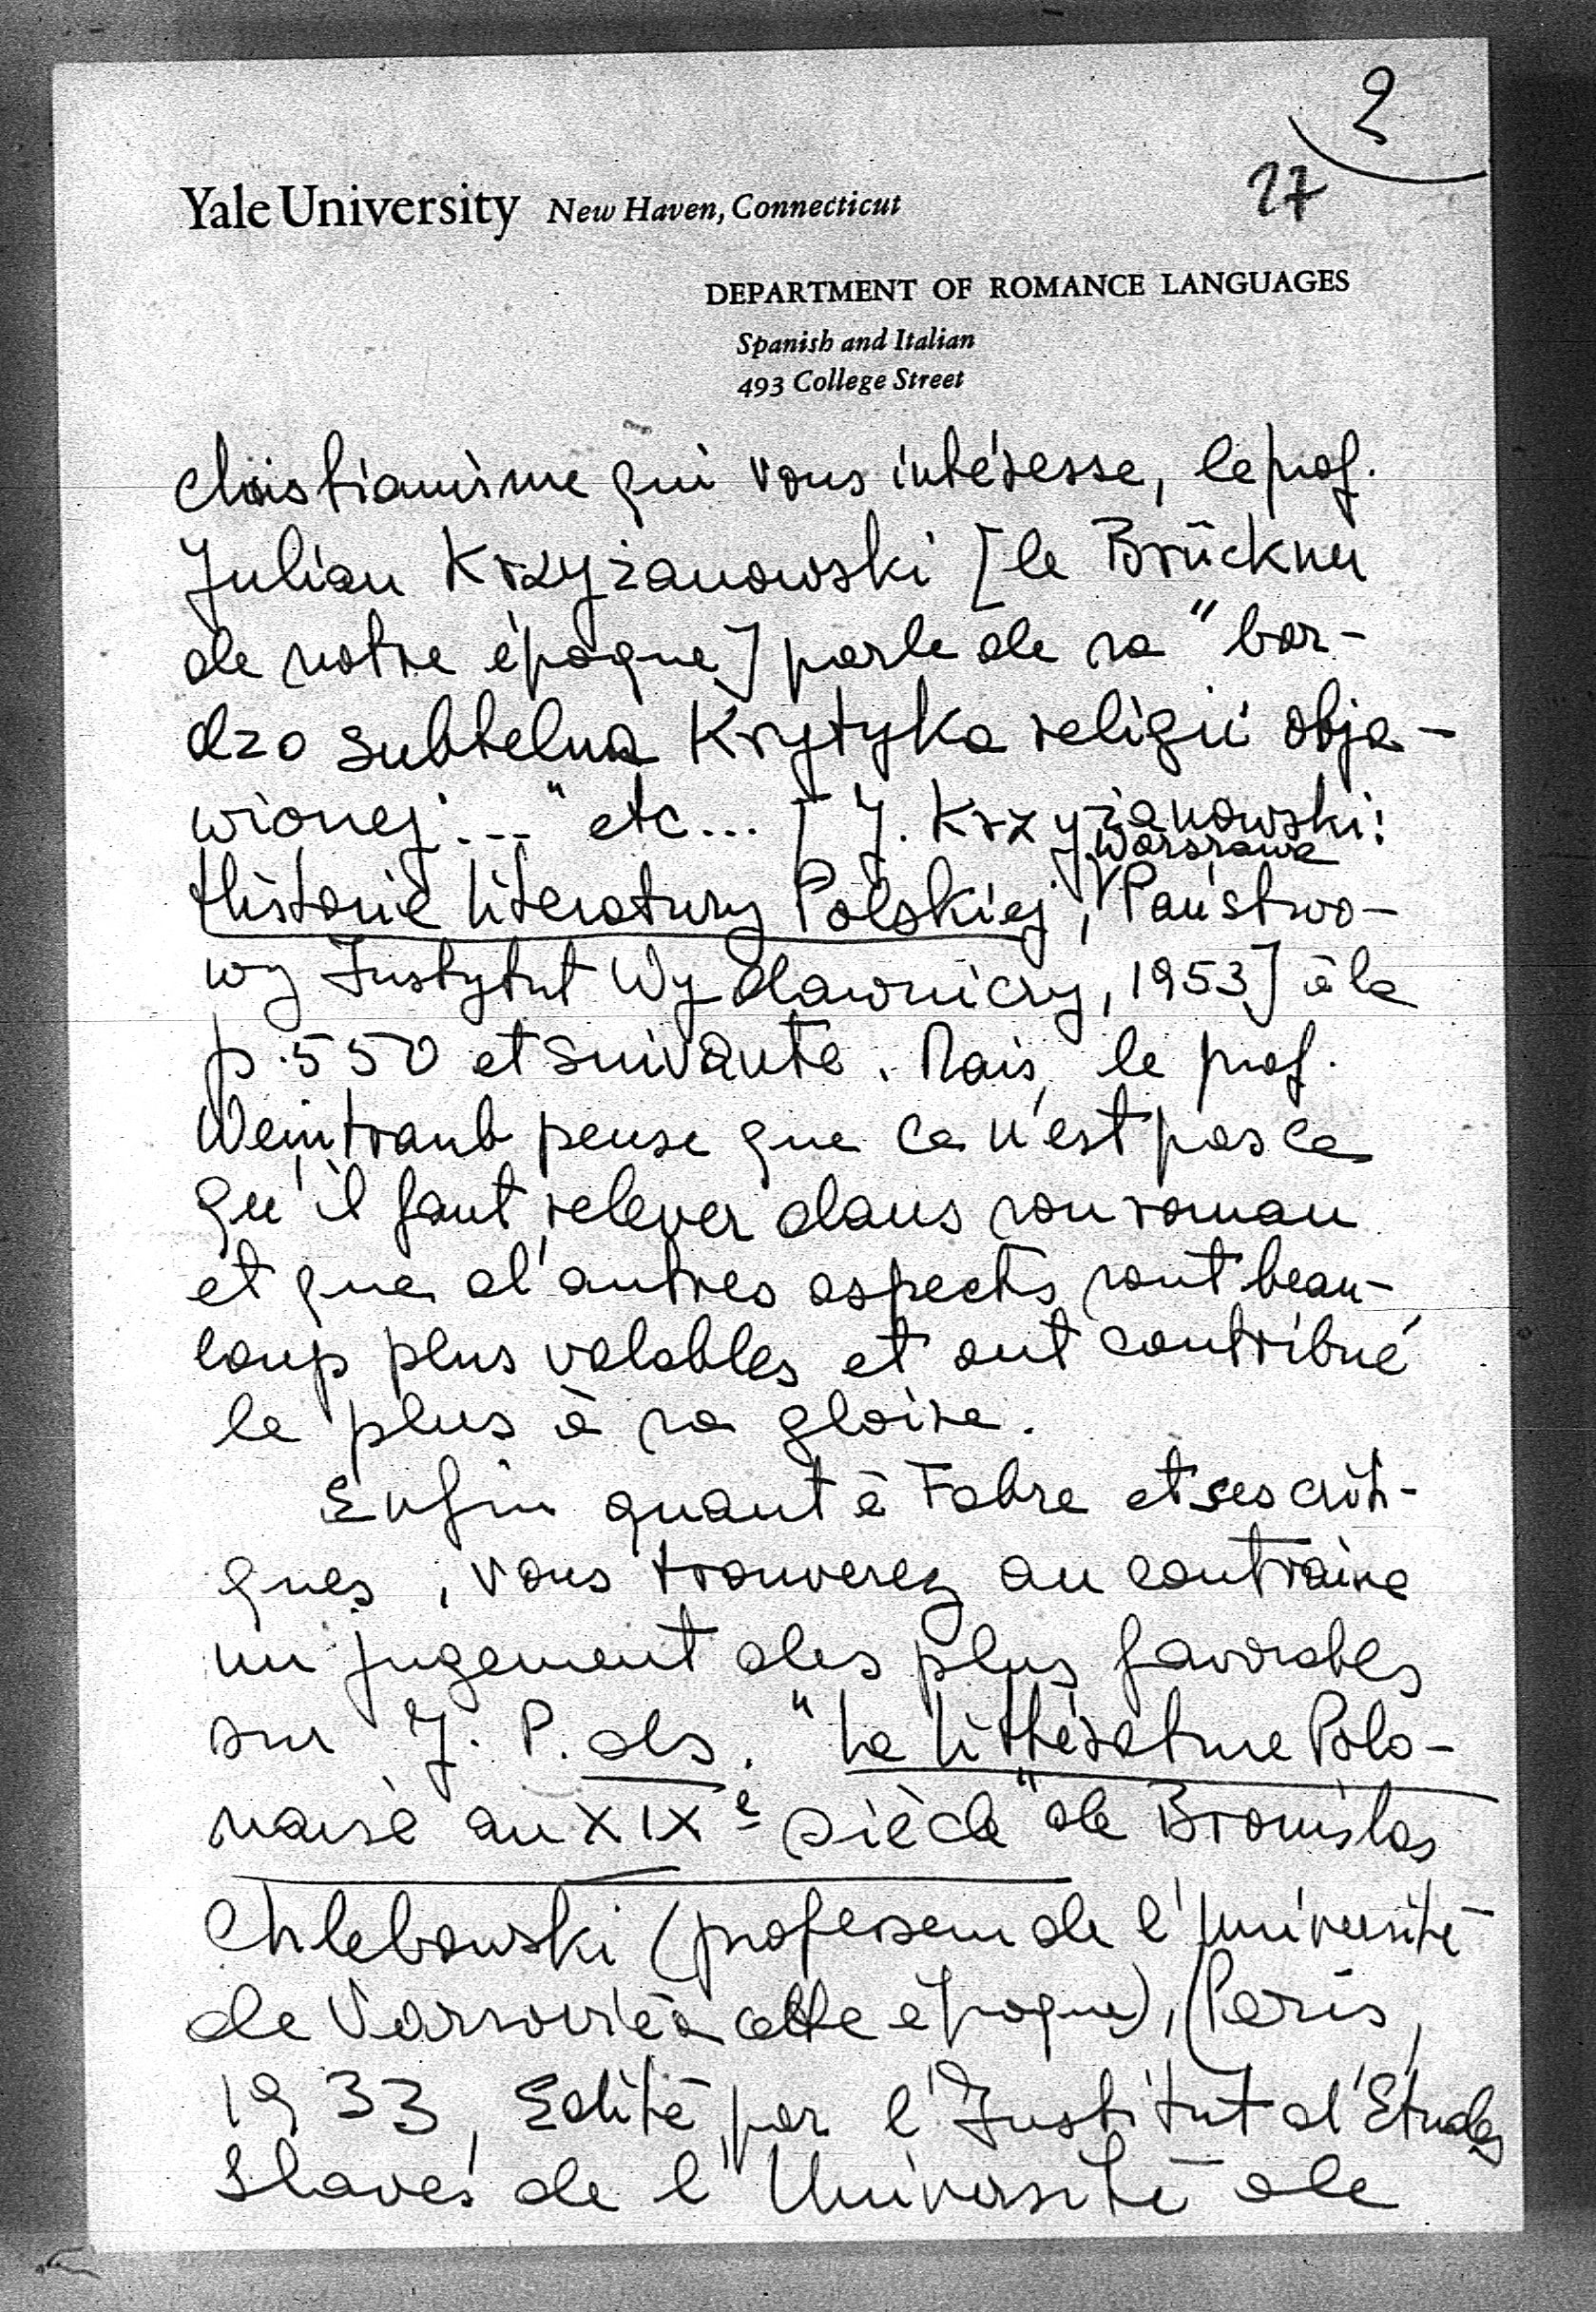 2
27
Yale University New Haven, Connecticut
DEPARTMENT OF ROMANCE LANGUAGES
Spanish and Italian
493 College Street
christianisme qui vous intéresse, le prof.
Julian Krzyżanowski [le Brückner
de notre époque] parle de sa "bar-
dzo subtelna Krytyka religii obja-
wionej..." etc... [J. Krzyżanowski:
Warszawa
Historie literatury Polskiej, Państwo-
wy Instytut Wydawniczy, 1953] à la
p. 550 et suivante. Mais, le prof.
Weintraub pense que ce n'est pas ce
qu'il faut relever dans son roman
et que d'autres aspects sont beau-
coup plus valables et ont contribué
le plus à sa gloire.
Enfin quant à Fabre et ses criti-
ques, vous trouverez au contraire
un jugement des plus favorables
sur J. P. ds. "La littérature Polo-
naise au XIXe siècle" de Bronislas
Chlebowski (professeur de l'Université
de Varsovie à cette époque), (Paris,
1933, Edité par l'Institut d'Etudes
Slaves de l'Université de